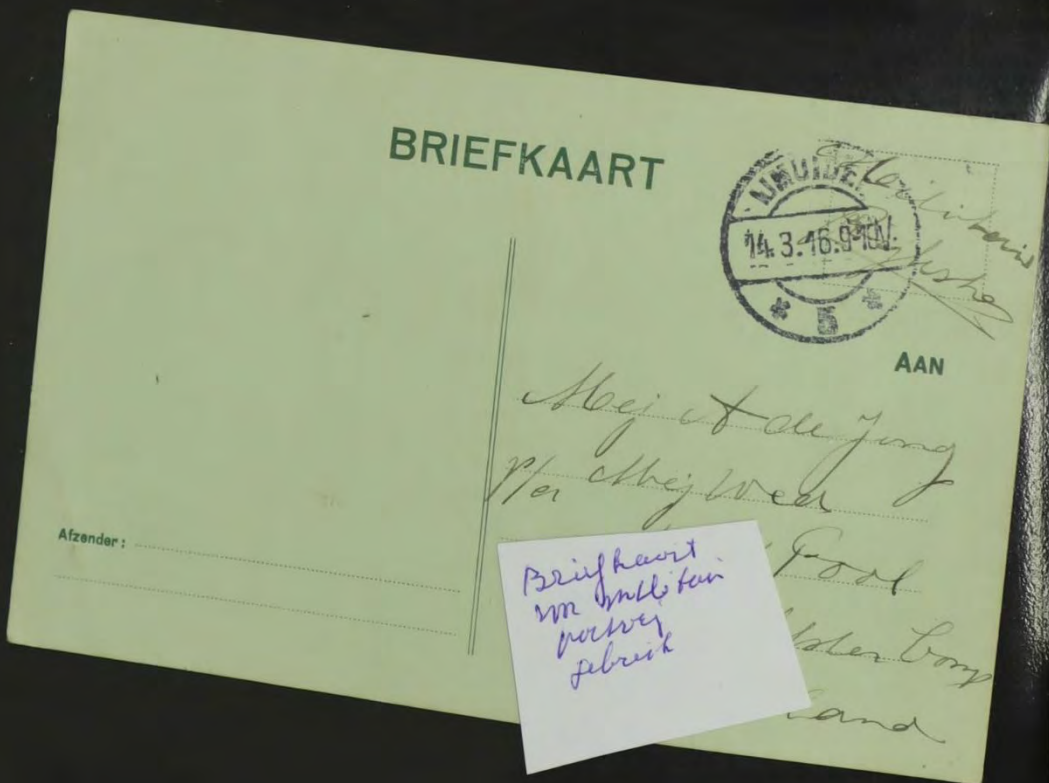 BRIEFKAART
IJMUIDEN
14.3.16.9-10V.
5
Militair
AAN
Mej A de Jong
p/a Mej Wed
Pool
Comp
land
Afzender:
Briefkaart
militair
portvrij
gebruik